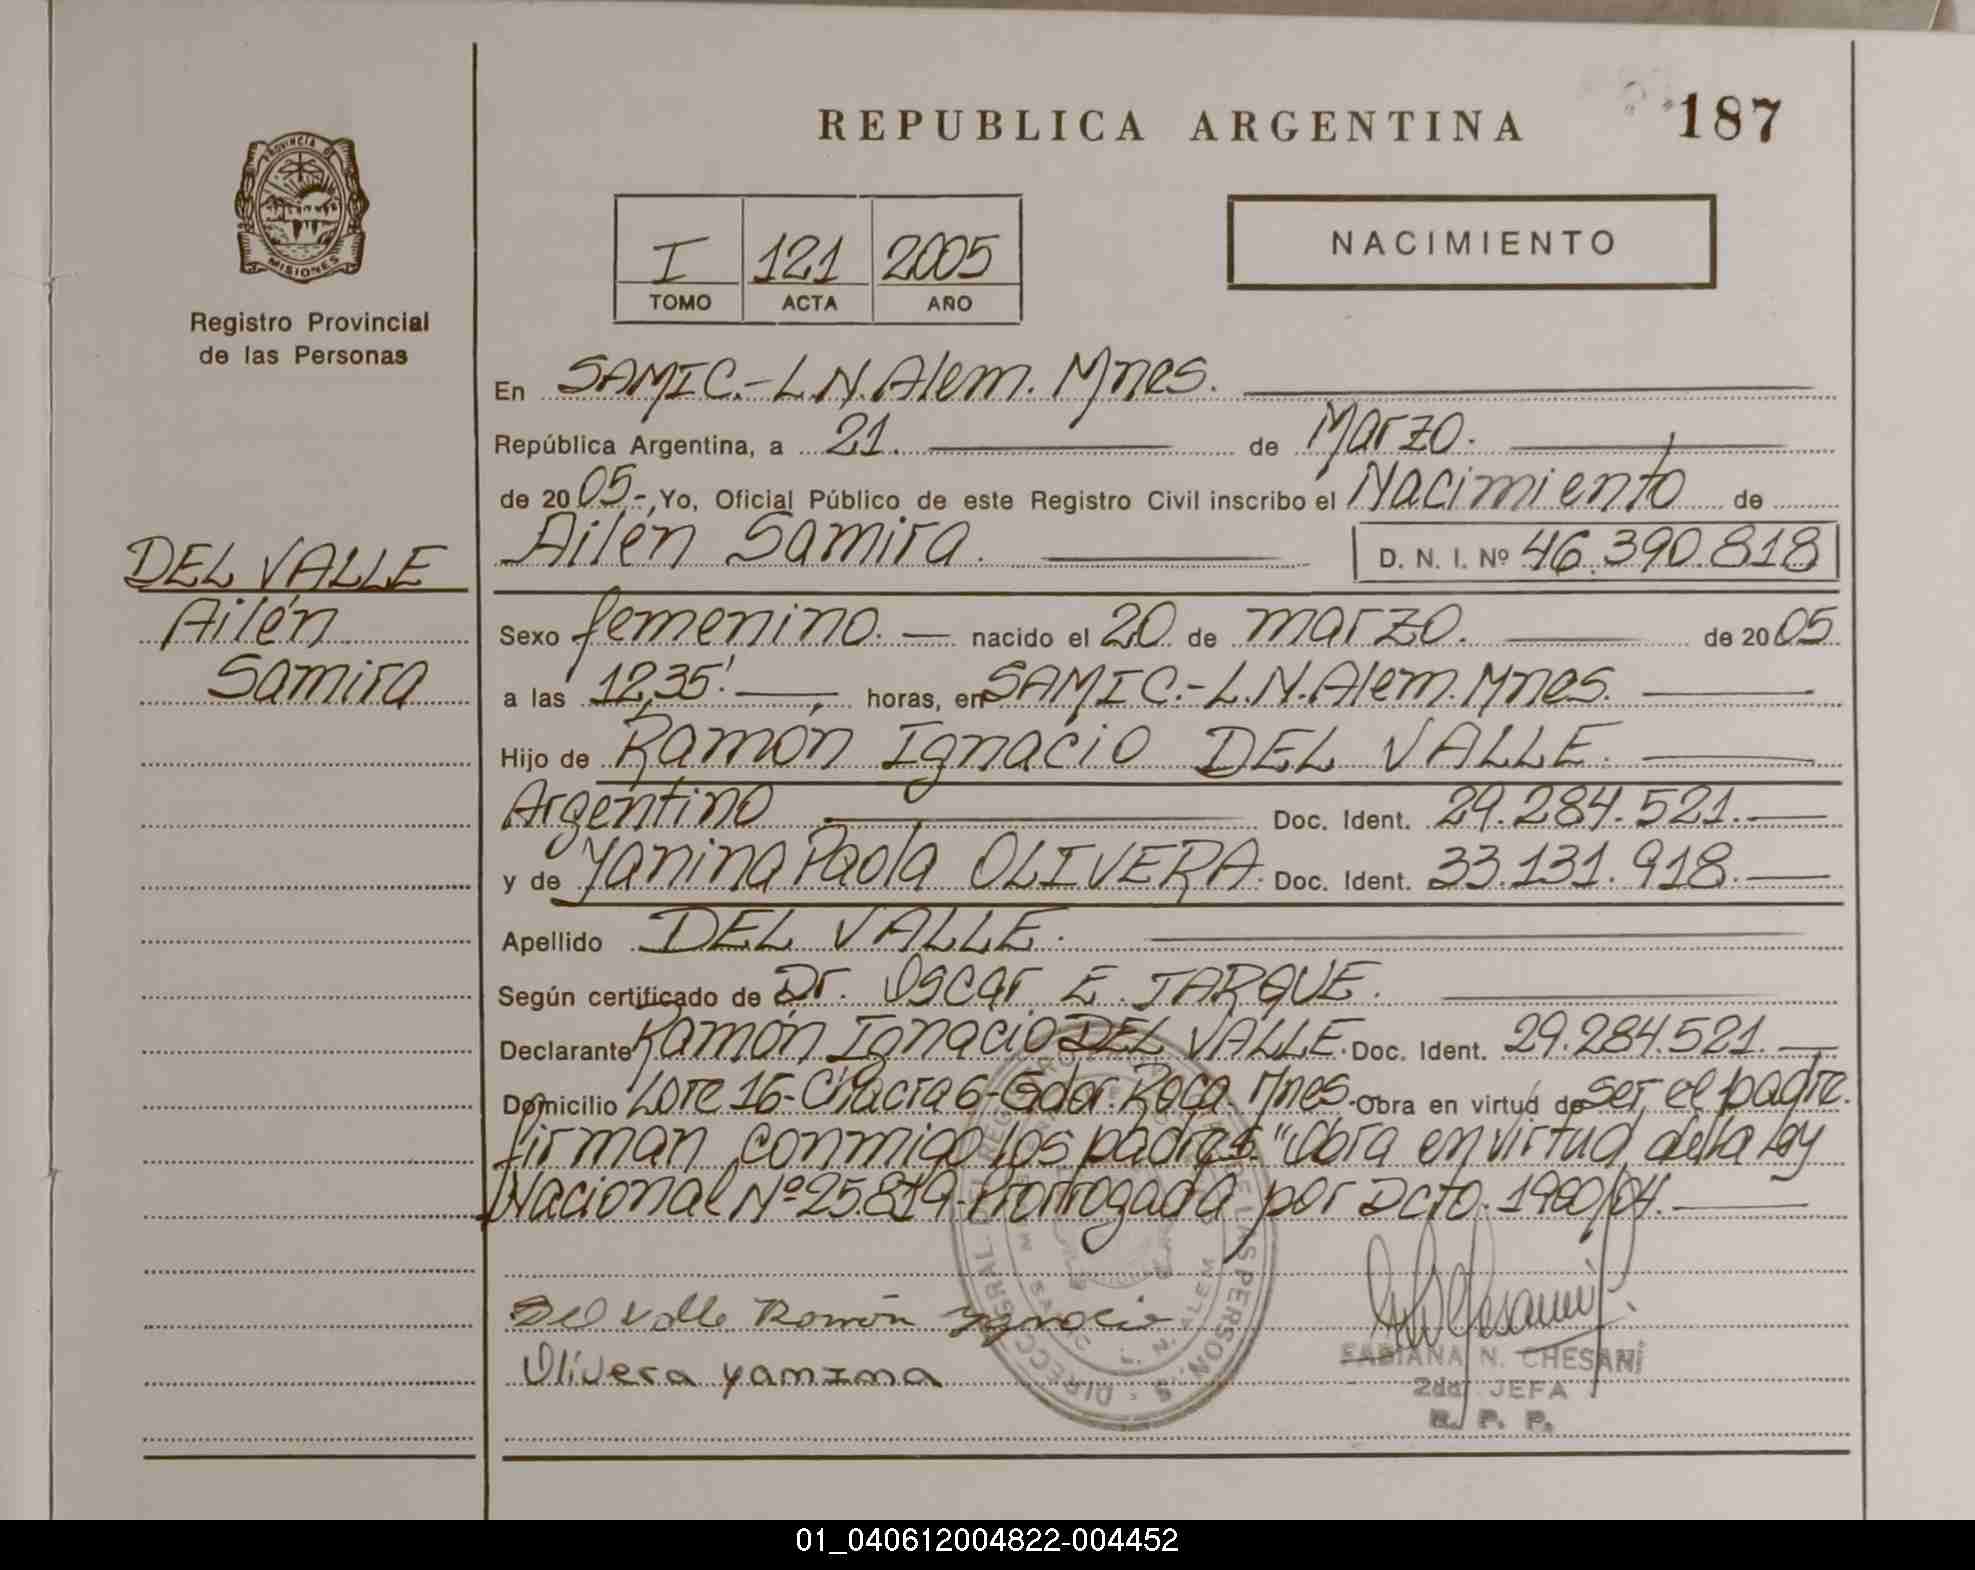 REPUBLICA ARGENTINA
187
PROVINCIA DE
MISIONES
Registro Provincial
de las Personas
I 121 2005
TOMO ACTA AÑO
NACIMIENTO
En SAMIC.-L.N.Alem. Mnes.
República Argentina, a 21. de Marzo.
de 2005-, Yo, Oficial Público de este Registro Civil inscribo el Nacimiento de
Ailén Samira. D. N. I. Nº 46.390.818
DEL VALLE
Ailén
Samira
Sexo femenino. nacido el 20 de marzo. de 2005
a las 12,35'. horas, en SAMIC.-L.N.Alem. Mnes.
Hijo de Ramón Ignacio DEL VALLE.
Argentino Doc. Ident. 29.284.521.
y de Yanina Paola OLIVERA. Doc. Ident. 33.131.918.
Apellido DEL VALLE.
Según certificado de Dr. Oscar E. JARQUE.
Declarante Ramón Ignacio DEL VALLE. Doc. Ident. 29.284.521.
Domicilio Lote 16-Chacra 6-Gdor. Roca. Mnes. Obra en virtud de ser el padre.
firman conmigo los padres. "Obra en virtud de la Ley
Nacional Nº 25.819-Prorrogada por Dcto. 1960/04.
Del Valle Ramón Ygnacio
Olivera Yanina
FABIANA N. CHESANI
2da JEFA
R. P. P.
L. N. ALEM
01_040612004822-004452